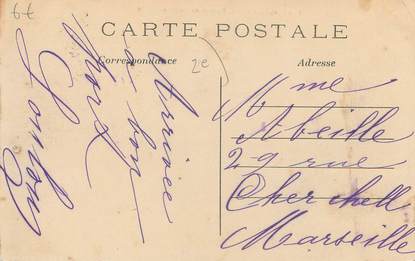 6t
CARTE POSTALE
Correspondance
Adresse
2e
Arrivée
a bon
port
Mme
Abeille
29 rue
Cherchell
Marseille